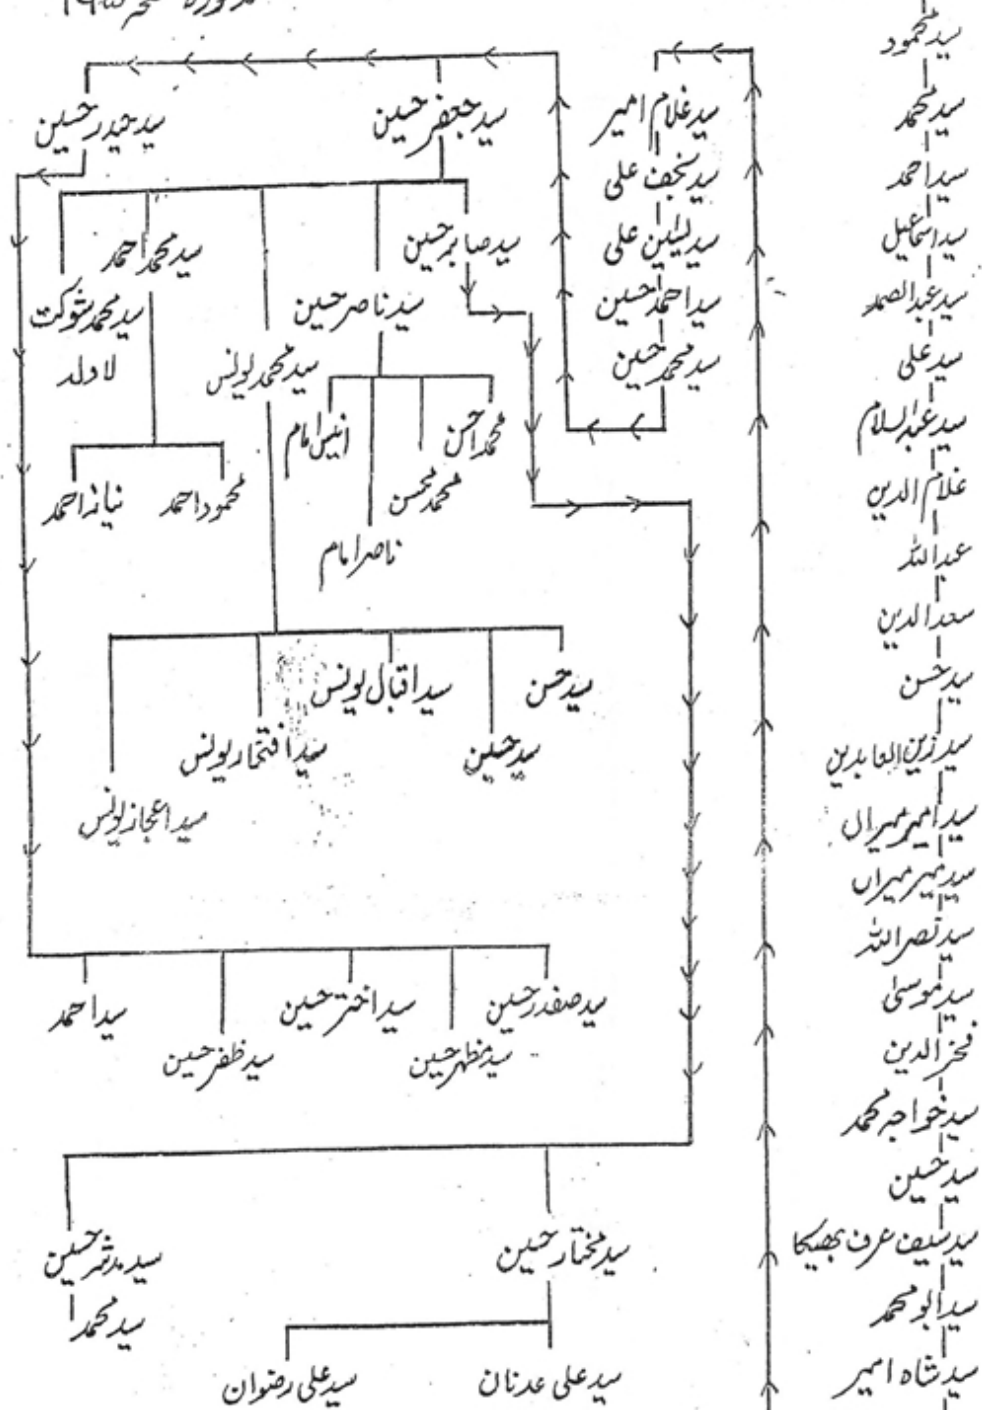 سید محمود
سید محمد
سید احمد
سید اسماعیل
سید عبدالصمد
سید علی
سید عبدالسلام
غلام الدین
عبداللہ
سعدالدین
سید حسن
سید زین العابدین
سید امیر میراں
سید میر میراں
سید نصراللہ
سید موسیٰ
فخرالدین
سید خواجہ محمد
سید حسین
سید سیف عرف بھیکا
سید ابو محمد
سید شاہ امیر
سید غلام امیر
سید نجف علی
سید یٰسین علی
سید احمد حسین
سید محمد حسین
سید جعفر حسین
سید حیدر حسین
سید صابر حسین
سید ناصر حسین
سید محمد یونس
سید محمد احمد
سید محمد شوکت
لا ولد
محمد احسن
محمد محسن
ناصر امام
انیس امام
محمود احمد
نیاز احمد
سید حسن
سید حسین
سید اقبال یونس
سید افتخار یونس
سید اعجاز یونس
سید صفدر حسین
سید مظہر حسین
سید اختر حسین
سید ظفر حسین
سید احمد
سید مختار حسین
سید مدثر حسین
سید محمد
سید علی عدنان
سید علی رضوان